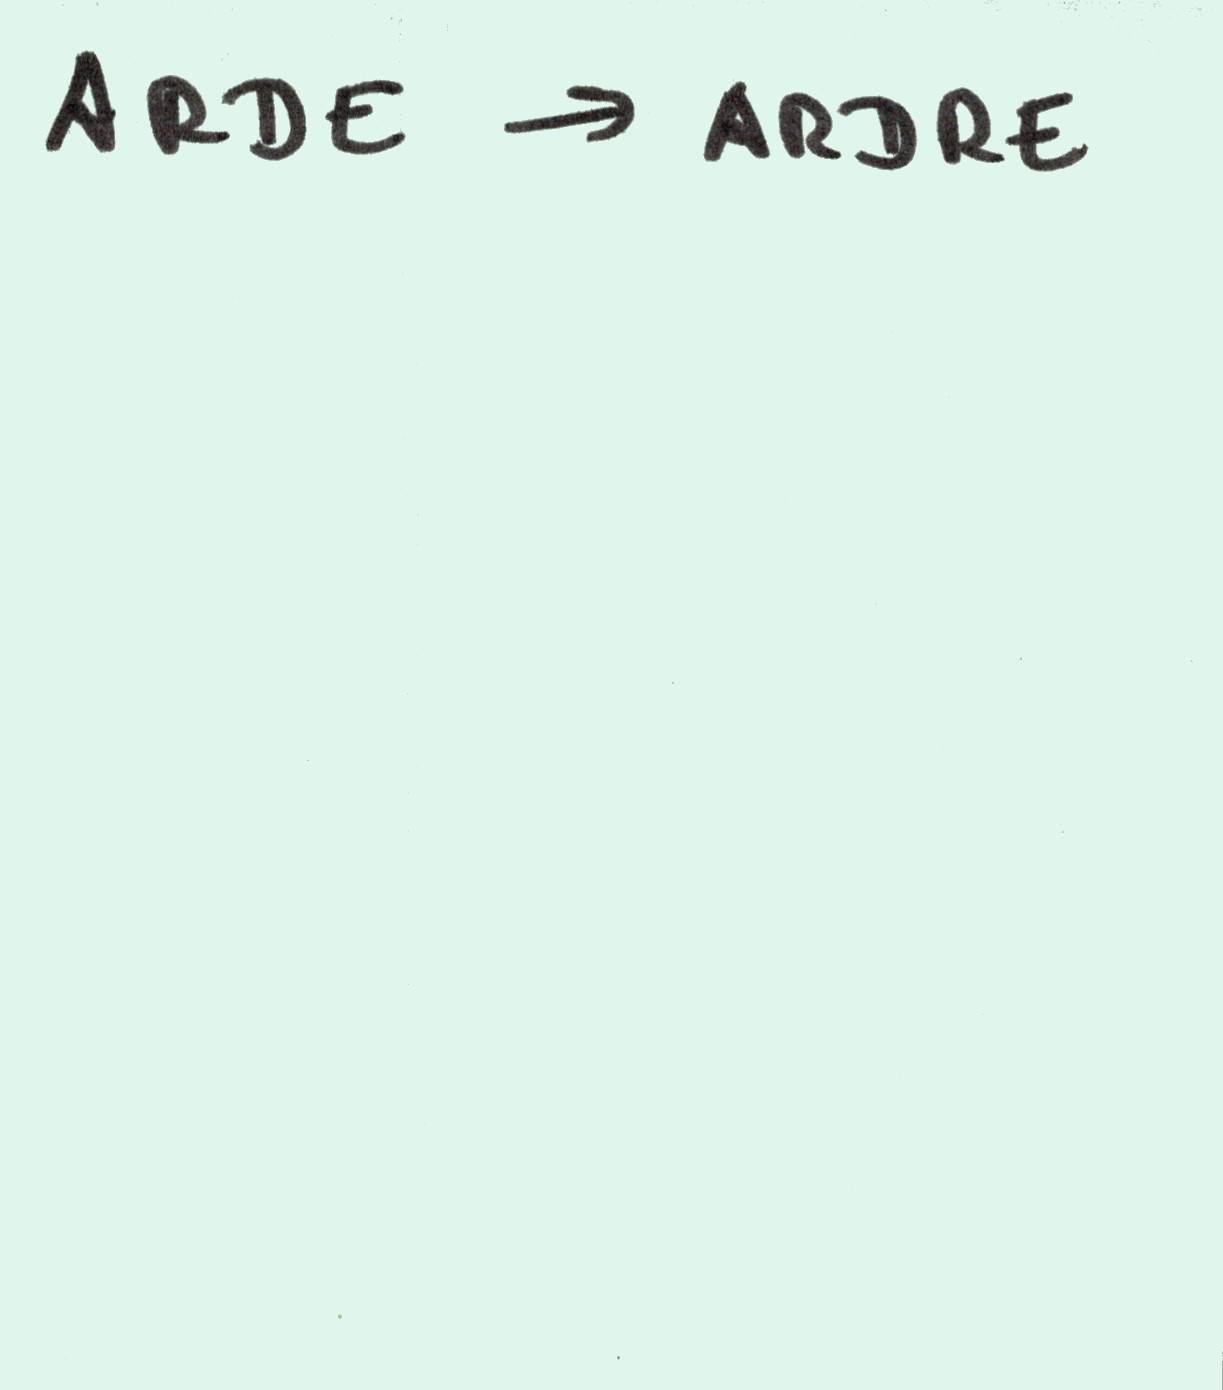 ARDE → ARDRE